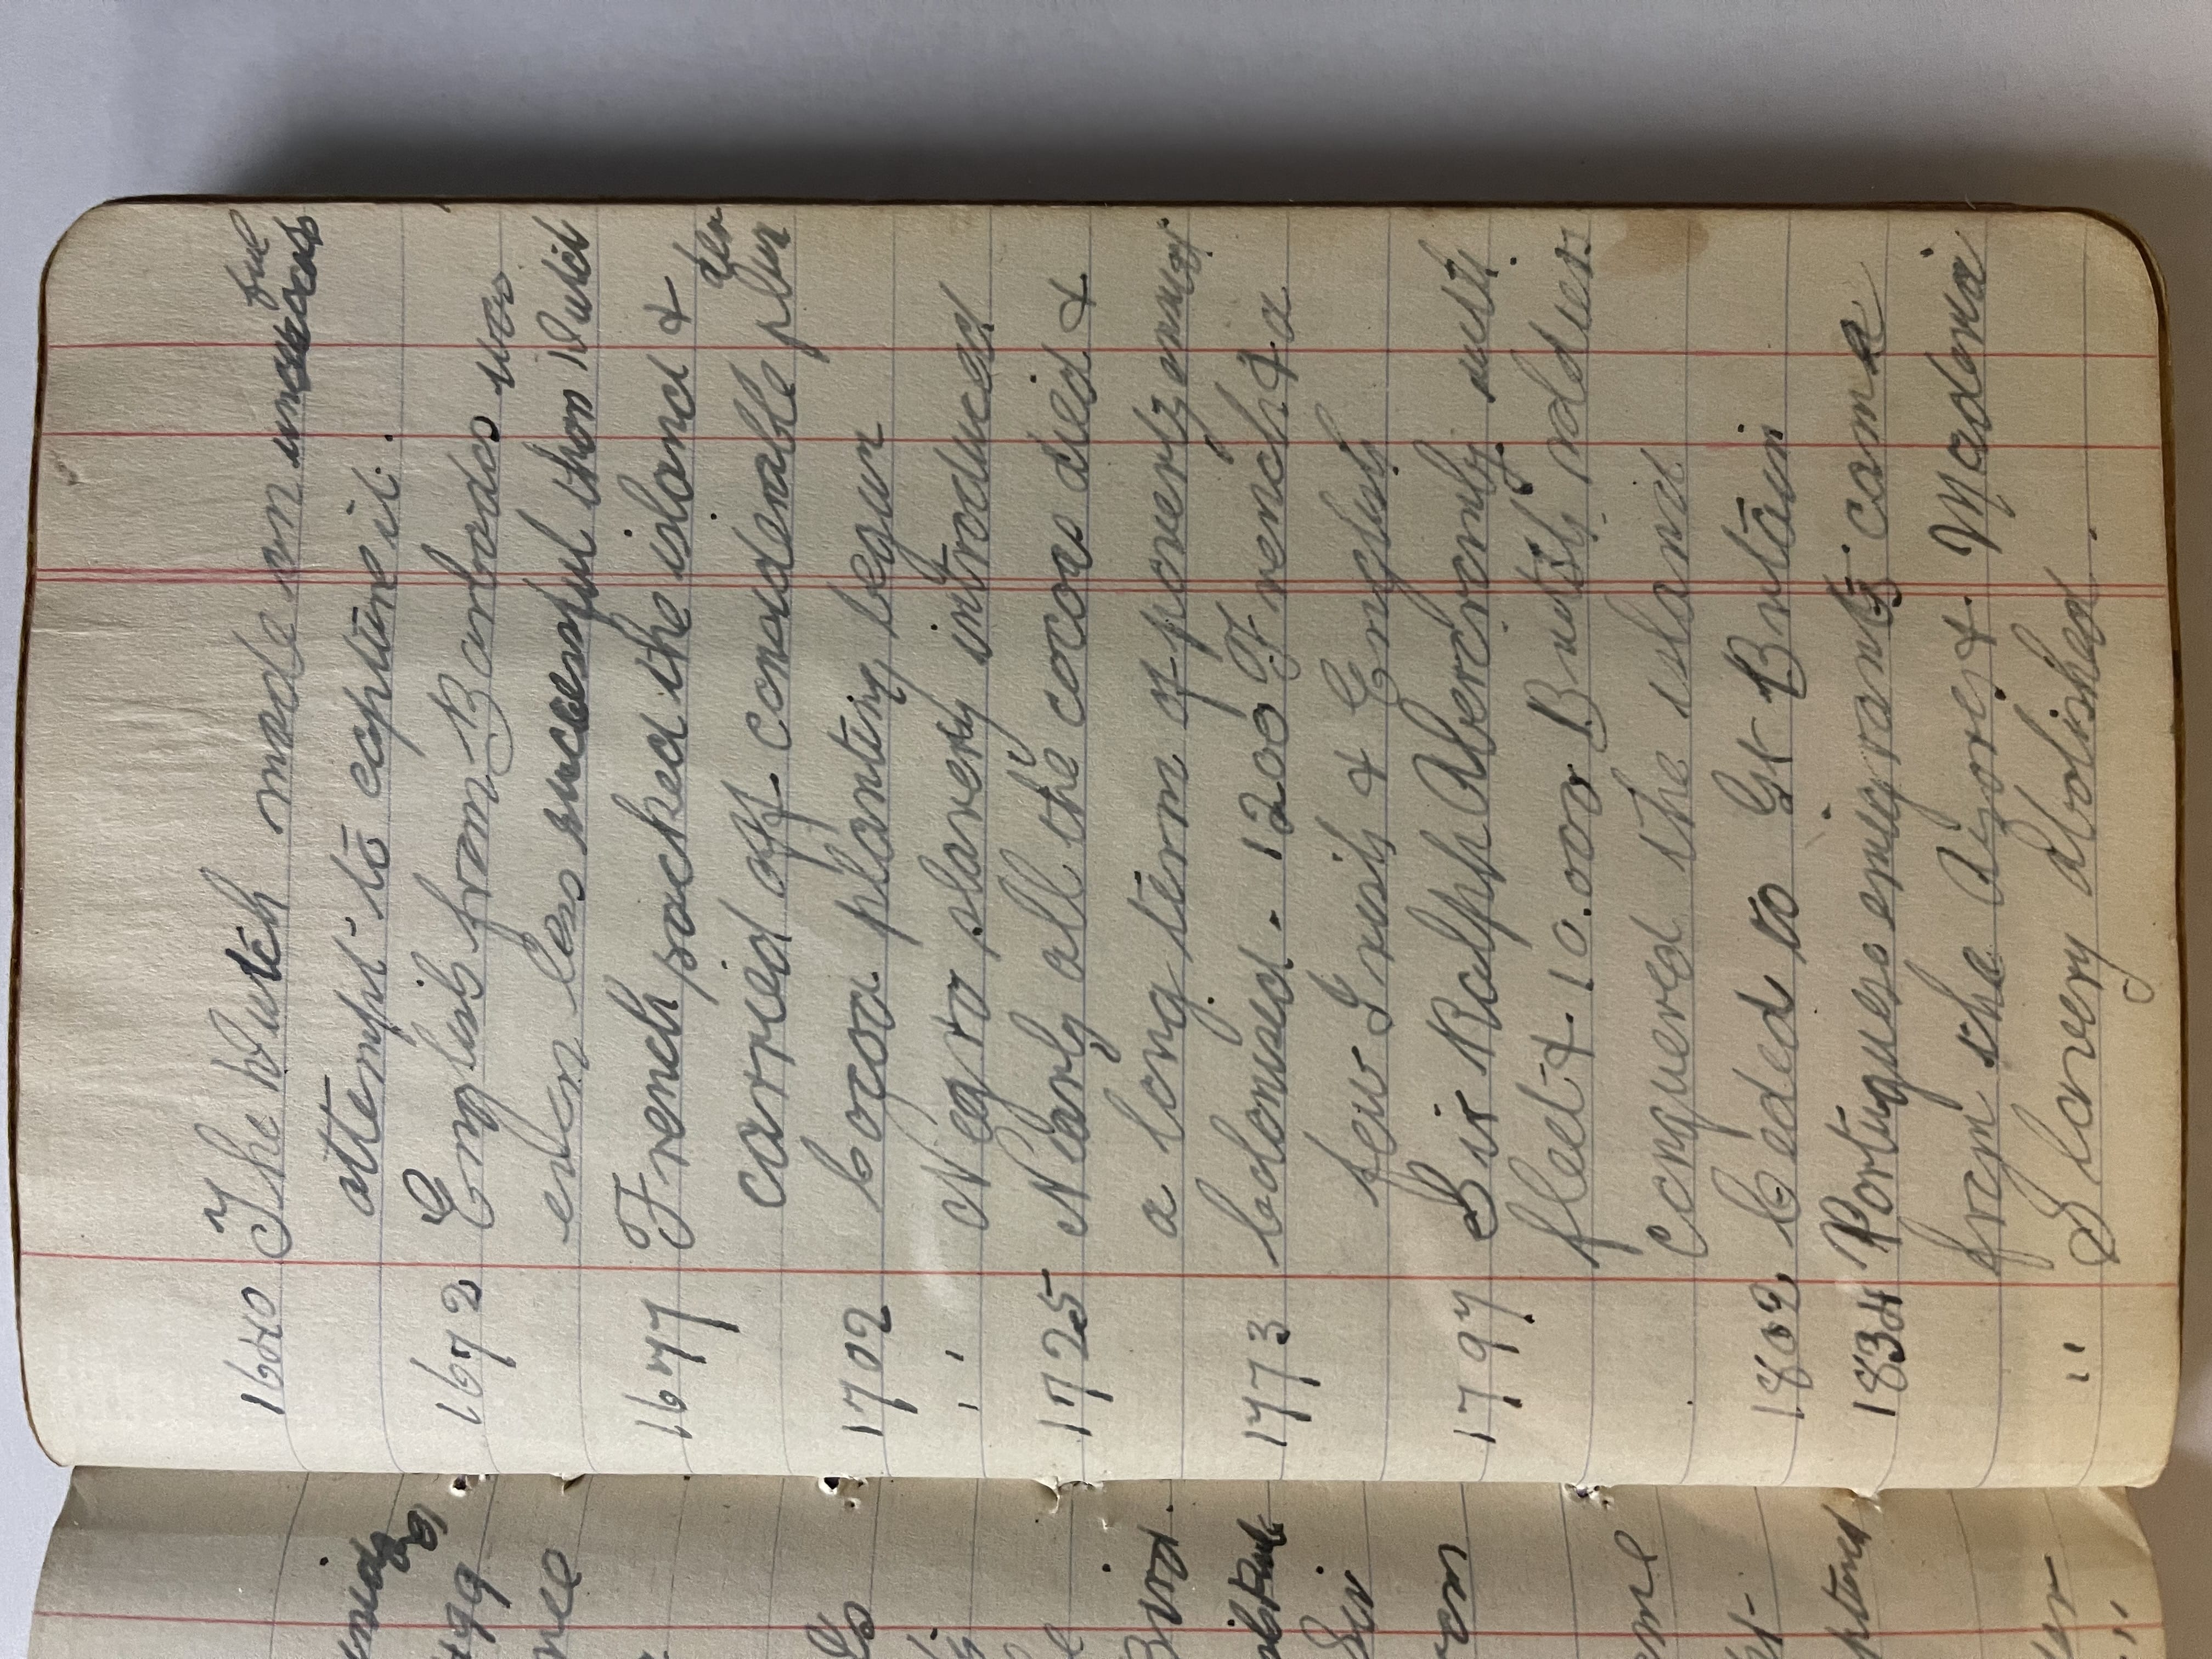 1640 The Dutch made an unsuccessful
attempt to capture it.
1672 English from Barbados was
even less successful than Dutch
1677 French sacked the island &
carried off considerable plunder
1702 Cocoa planting begun
" Negro slavery introduced
1725 Nearly all the cocoa died &
a long term of poverty ensued
1773 Colonised. 1200 French & a
few Irish & English
1797 Sir Ralph Abercromby with
fleet & 10.000 British soldiers
conquered the island
1802 Ceded to Gt Britain
1834 Portuguese emigrants came
from the Azores & Maderia
" Slavery abolished.